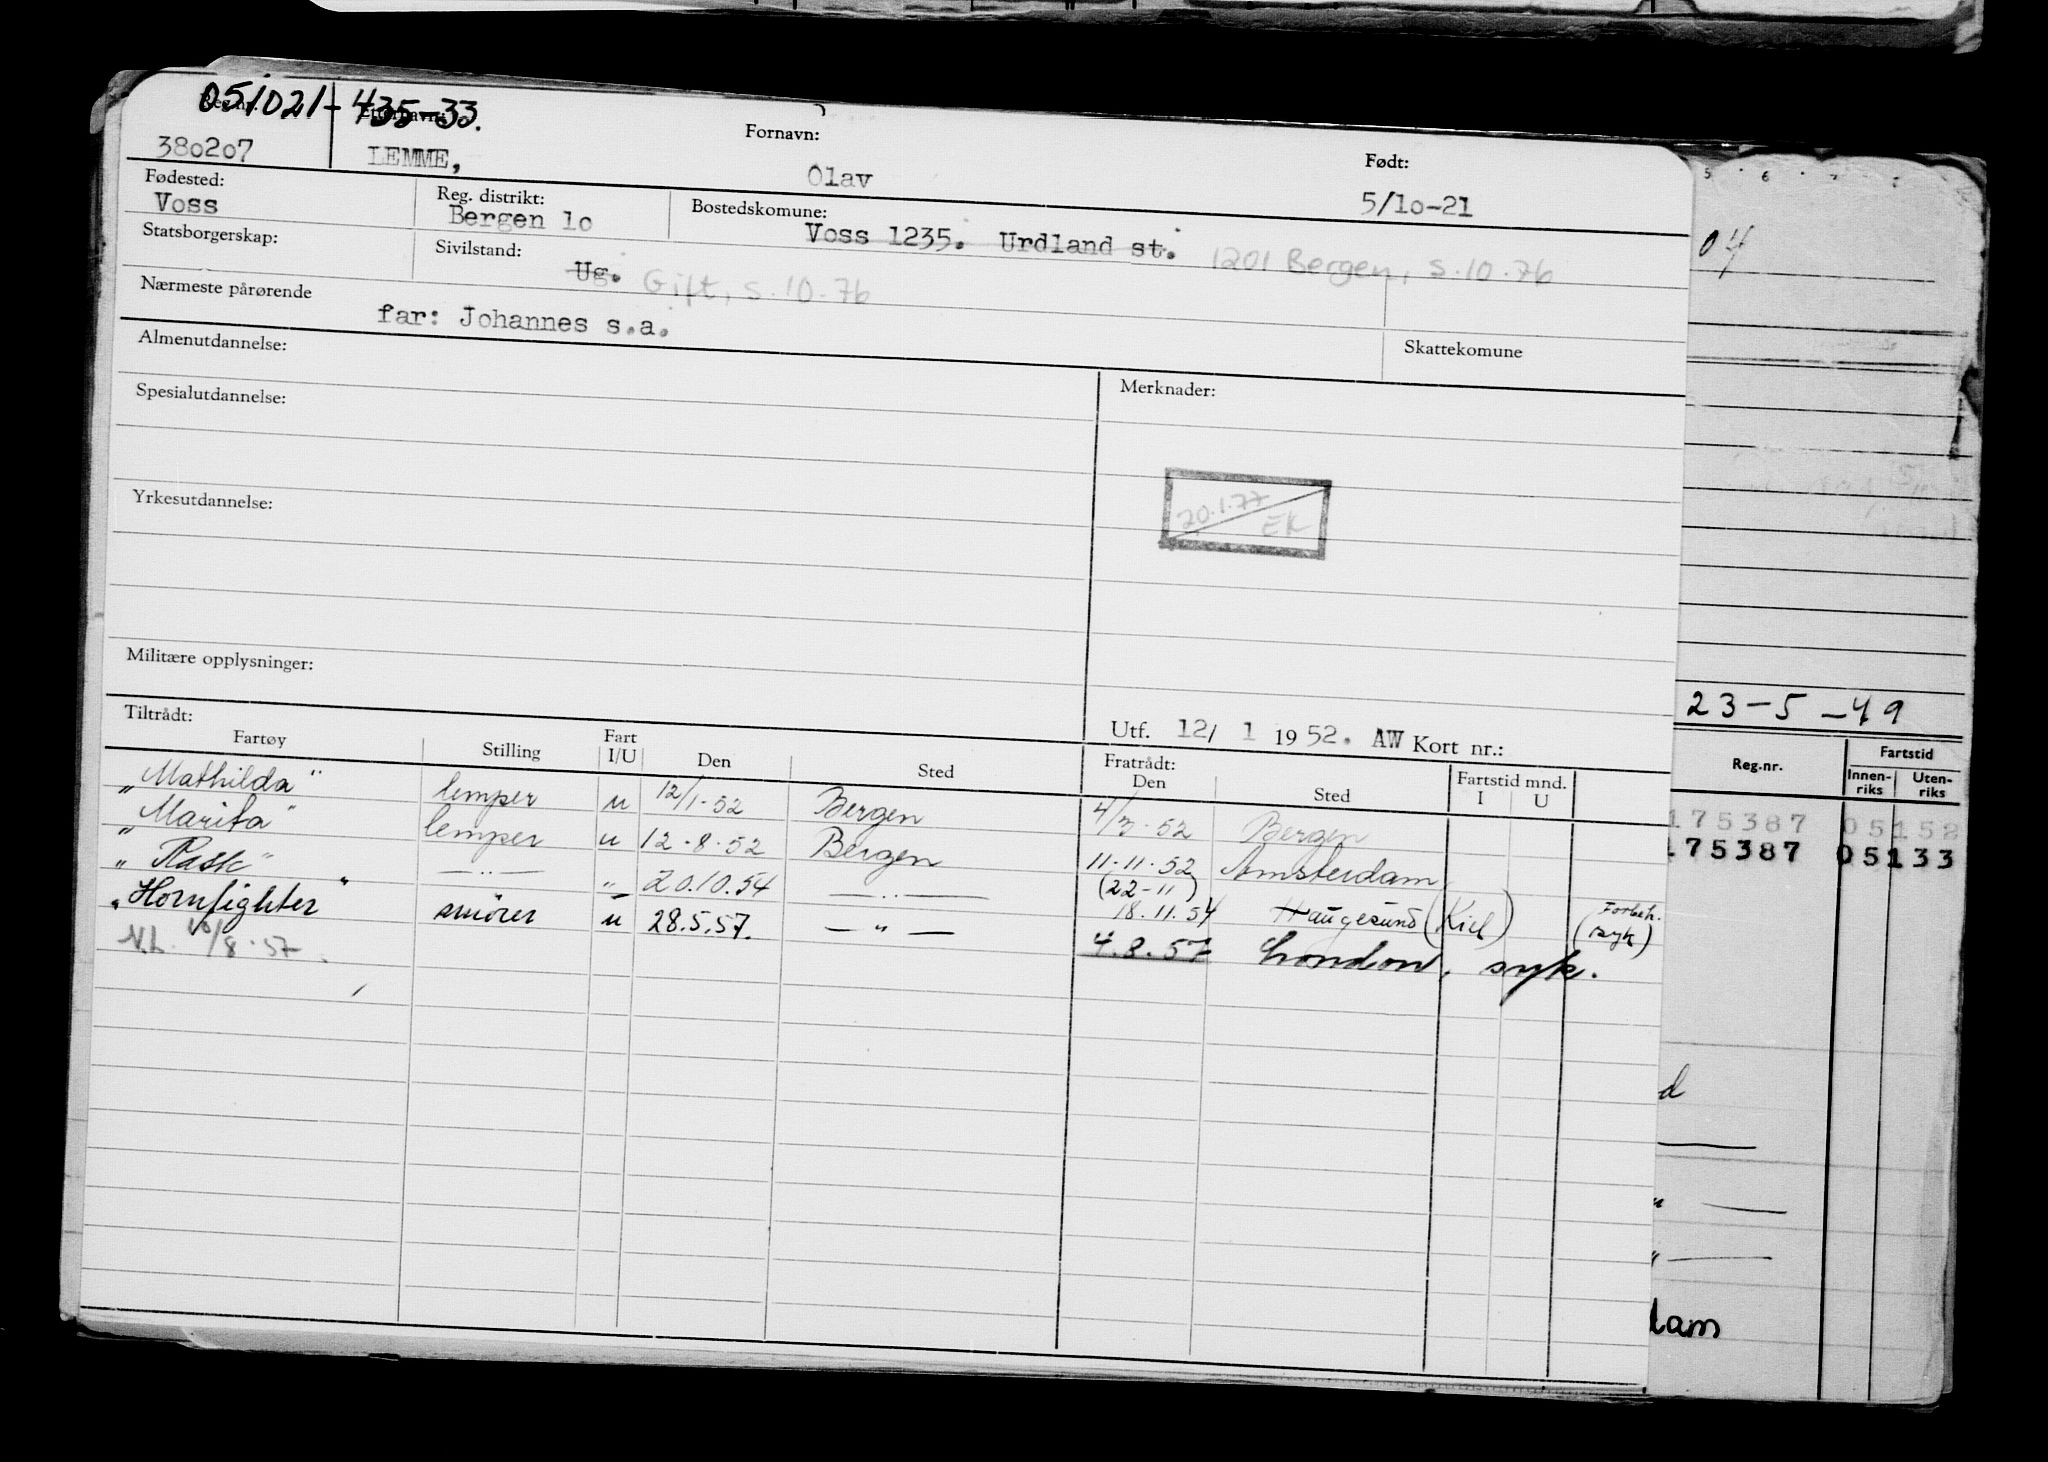 051021-43533.
Reg.nr. Etternavn: Fornavn: Født:
380207 LEMME, Olav 5/10-21
Fødested: Reg. distrikt: Bostedskomune:
Voss Bergen 10 Voss 1235. Urdland st. 1201 Bergen, s.10.76
Statsborgerskap: Sivilstand:
Ug. Gift, s.10.76
Nærmeste pårørende
far: Johannes s.a.
Skattekomune
Almenutdannelse:
Merknader:
Spesialutdannelse:
20.1.77
EK
Yrkesutdannelse:
Militære opplysninger:
Utf. 12/ 1 1952. AW Kort nr.:
Tiltrådt: Fratrådt:
Fartøy Stilling Fart I/U Den Sted Den Sted Fartstid mnd. I U
"Mathilda" lemper u 12/1-52 Bergen 4/3-52 Bergen
"Marita" lemper u 12-8-52 Bergen 11-11-52 Amsterdam
"Rask" —„— „ 20.10.54 —„— (22-11) 18.11.54 Haugesund (Kiel) (Forbeh. syk)
"Hornfighter" smører u 28.5.57. —„— 4.8.57 London, syk.
N.L. 16/8-57.
5 6 7
04
23-5-49
Reg.nr. Fartstid
Innen-riks Uten-riks
175387 05152
175387 05133
d
dam